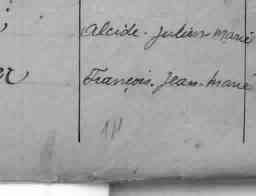 Alcide. Julien Marie
François. Jean. Marie